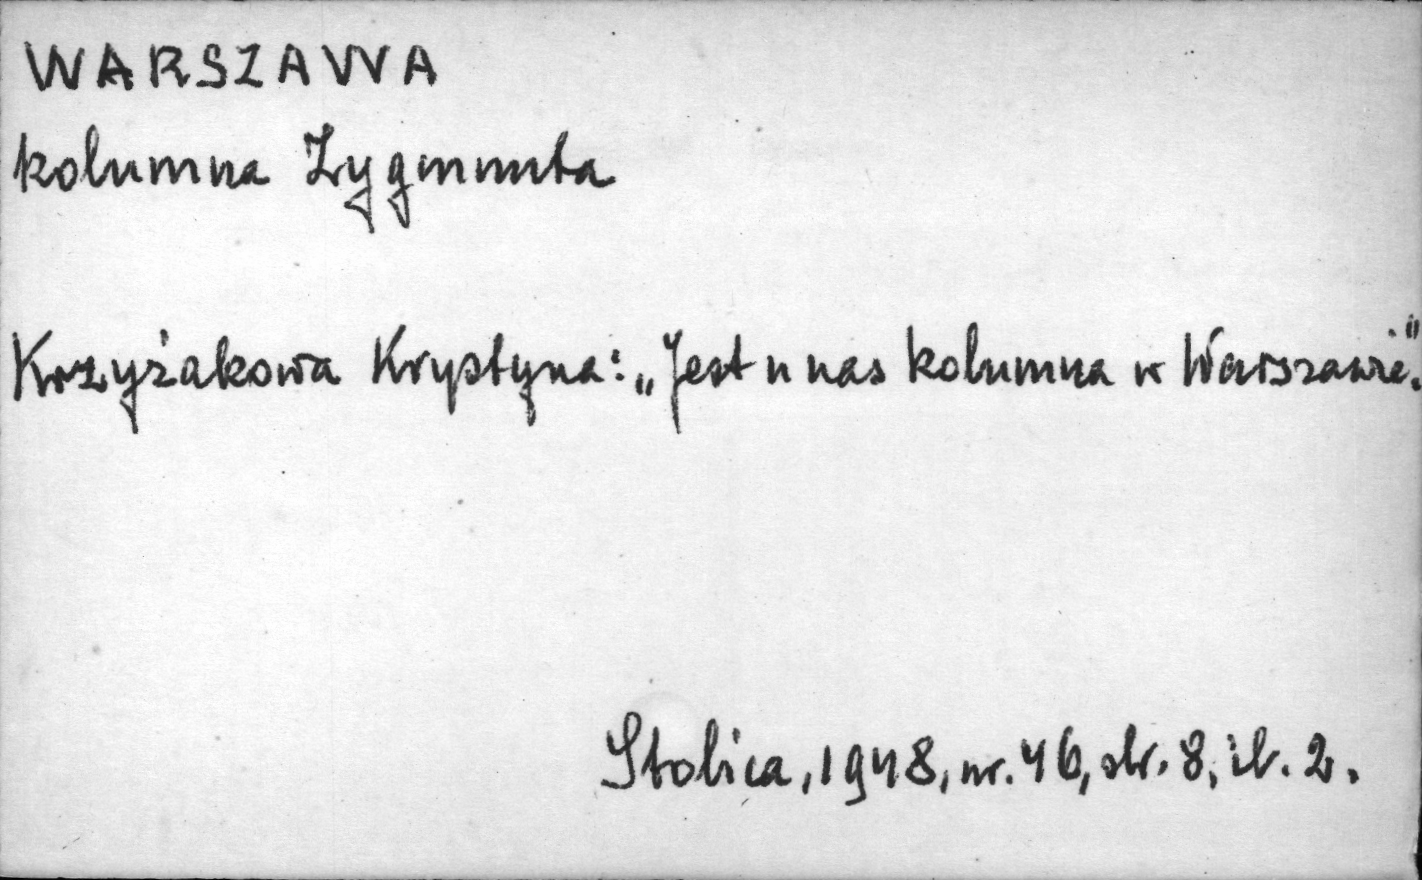 WARSZAWA
kolumna Zygmunta
Krzyżakowa Krystyna: „Jest u nas kolumna w Warszawie".
Stolica, 1948, nr. 46, str. 8, il. 2.